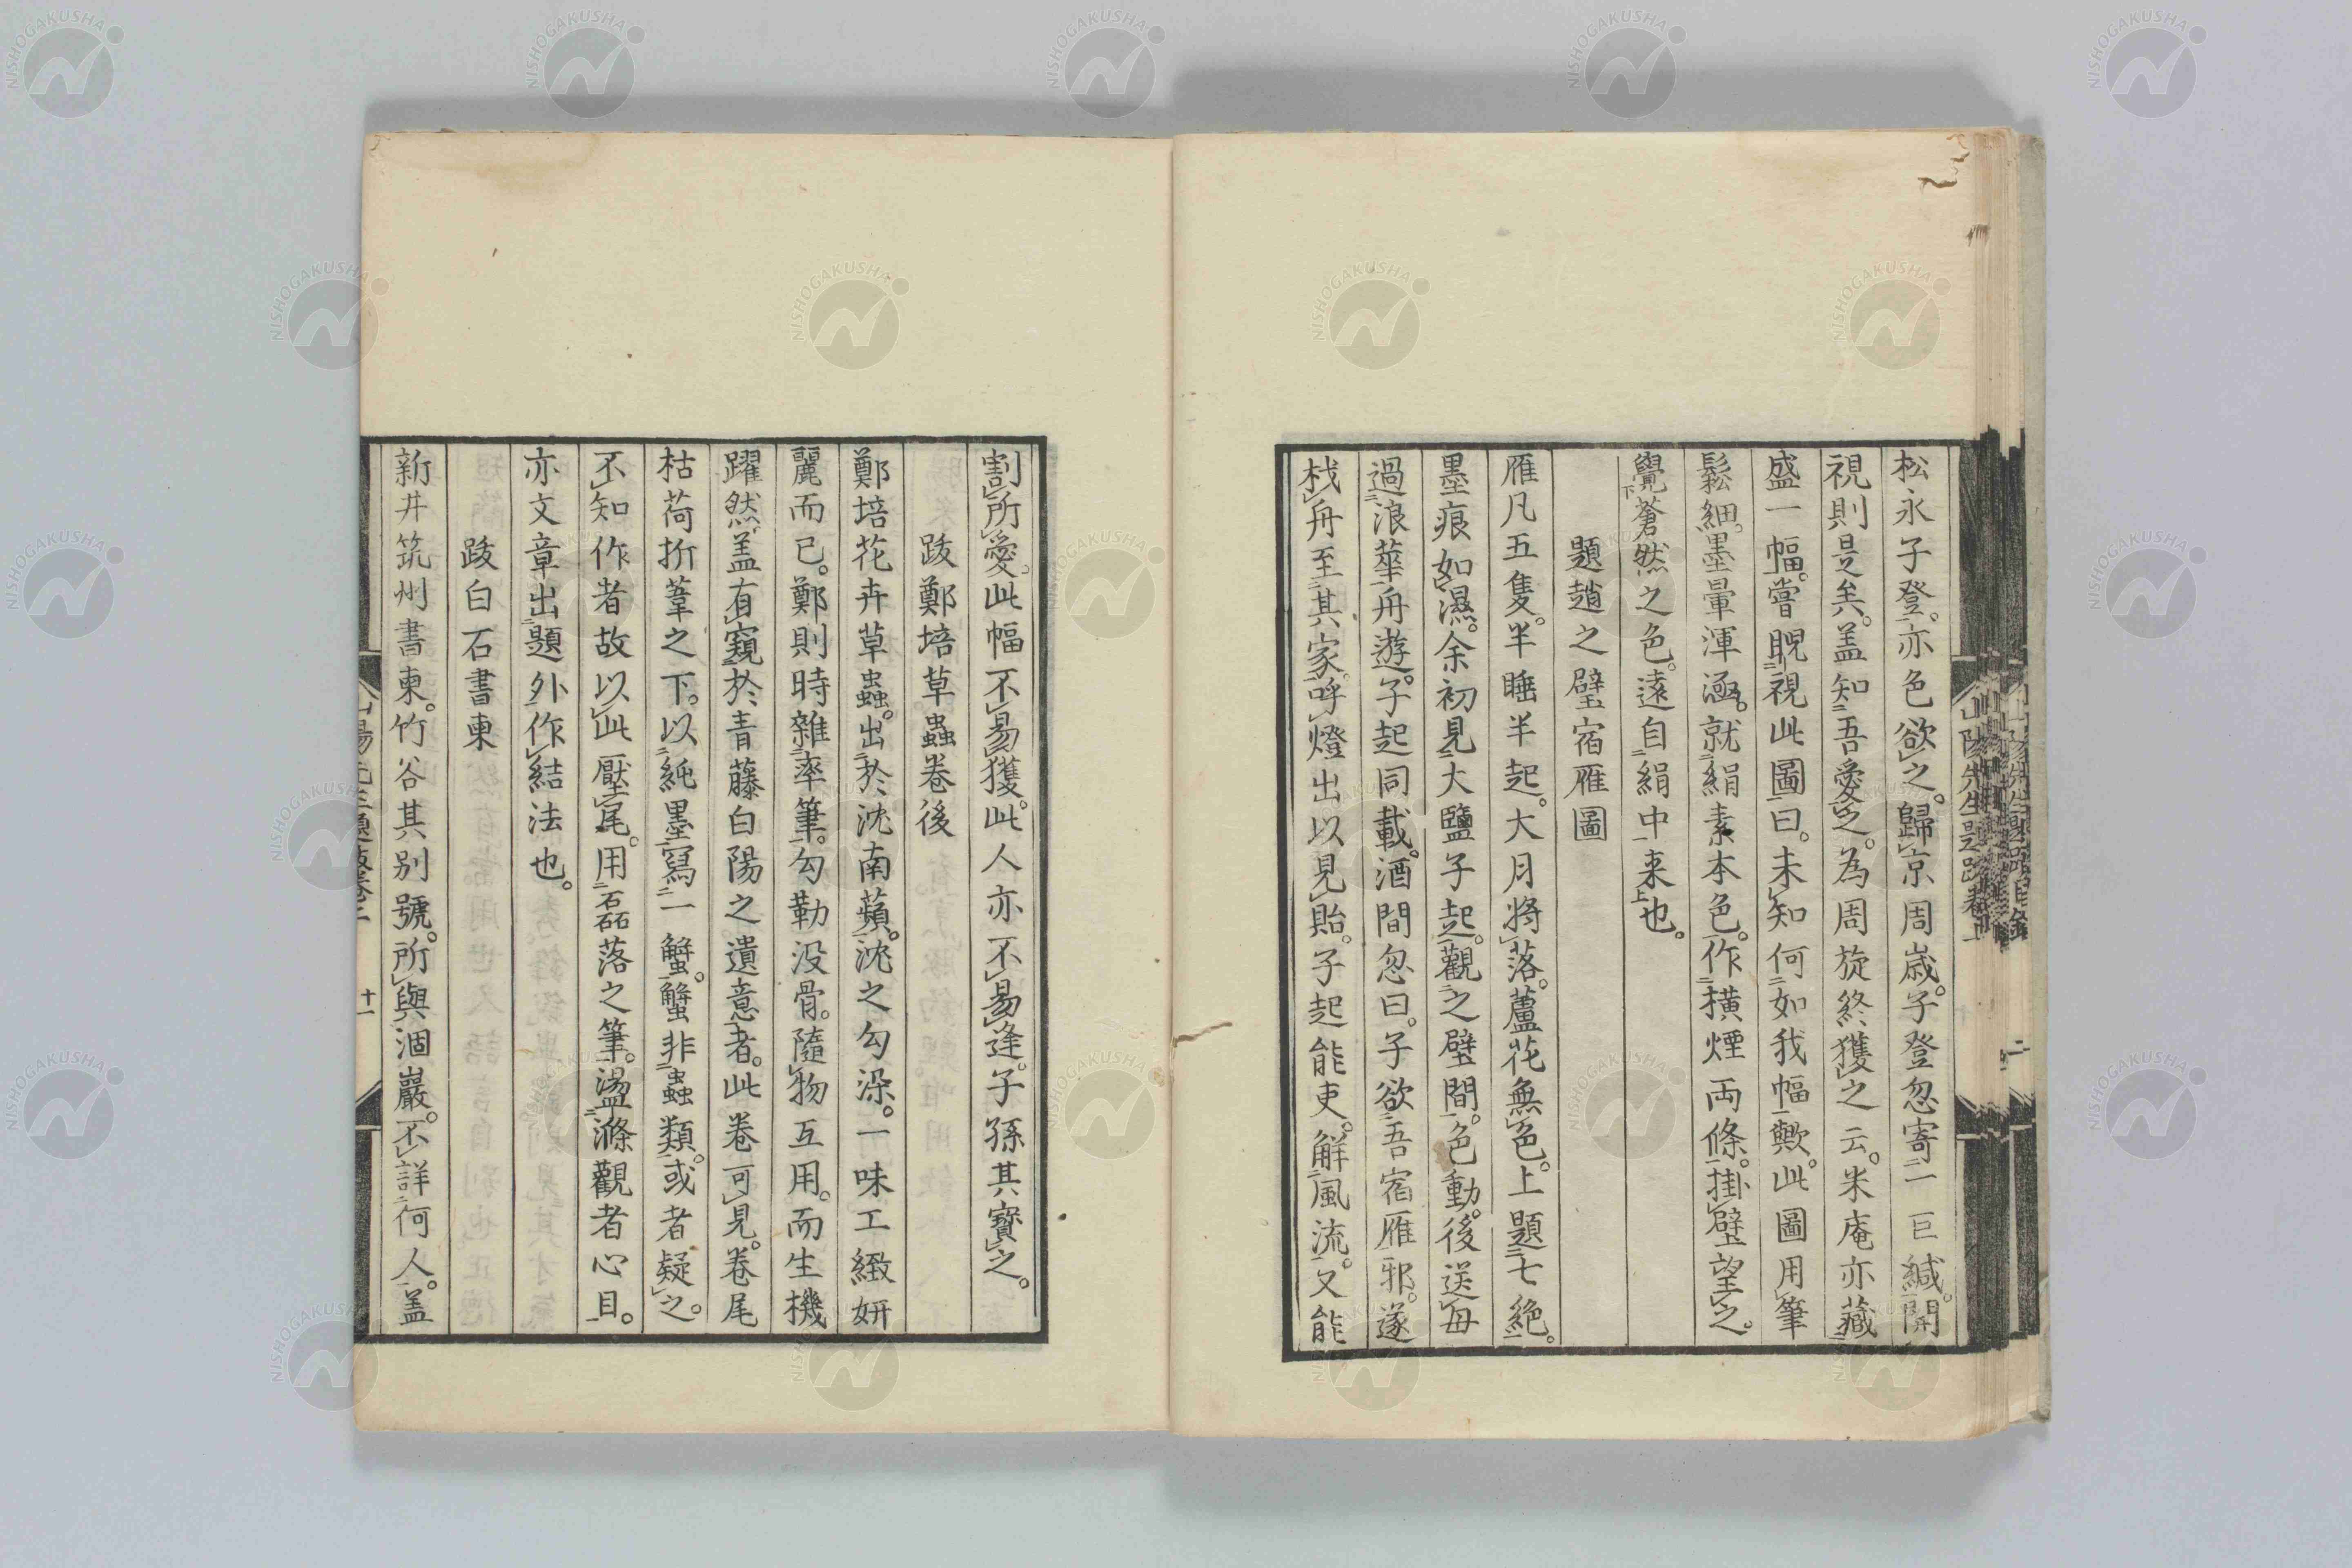 松永子登。亦色欲之。歸京周歳。子登忽寄一巨緘。開
視則是矣。盖知吾愛之。為周旋終獲之云。米庵亦藏
盛一幅。嘗睨視此圖曰。未知何如我幅歟。此圖用筆
鬆細。墨暈渾涵。就絹素本色。作橫煙両條。掛壁望之。
覺蒼然之色。遠自絹中来也。
題趙之璧宿雁圖
雁凡五隻。半睡半起。大月將落。蘆花無色。上題七絶。
墨痕如濕。余初見大鹽子起。觀之壁間。色動。後送母
過浪華。舟遊。子起同載。酒間忽曰。子欲吾宿雁邪。遂
棧舟至其家。呼燈出以見貽。子起能吏。解風流。又能
割所愛。此幅不易獲。此人亦不易逢。子孫其寶之。
跋鄭培草蟲卷後
鄭培花卉草蟲。出於沈南蘋。沈之勾染。一味工緻妍
麗而已。鄭則時雜率筆。勾勒没骨。隨物互用。而生機
躍然。盖有窺於青藤白陽之遺意者。此卷可見。卷尾
枯荷折葦之下。以純墨寫一蟹。蟹非蟲類。或者疑之。
不知作者故以此壓尾。用磊落之筆。盪滌觀者心目。
亦文章出題外作結法也。
跋白石書柬
新井筑州書柬。竹谷其别號。所與涸巖。不詳何人。盖
山陽先生題跋卷上
十一